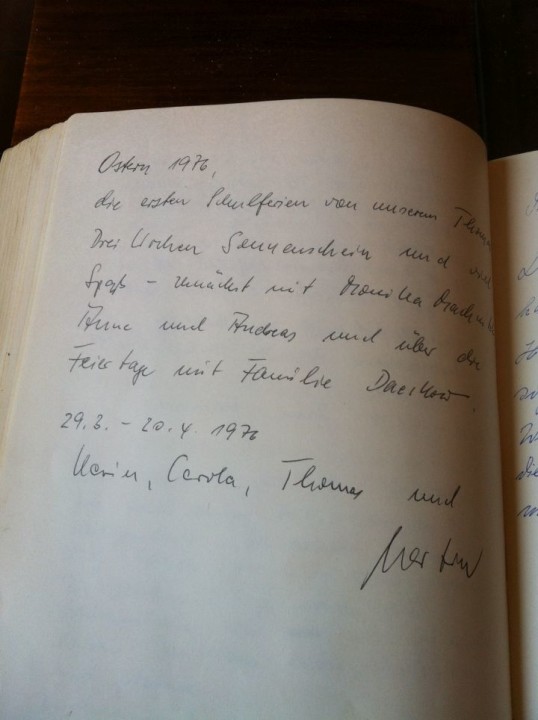 Ostern 1976,
die ersten Schulferien von unserem Thomas
Drei Wochen Sonnenschein und viel
Spaß - zunächst mit Monika
Anne und Andreas und über die
Feiertage mit Familie
29.3. - 20.4. 1976
Karin, Carola, Thomas und
Martin